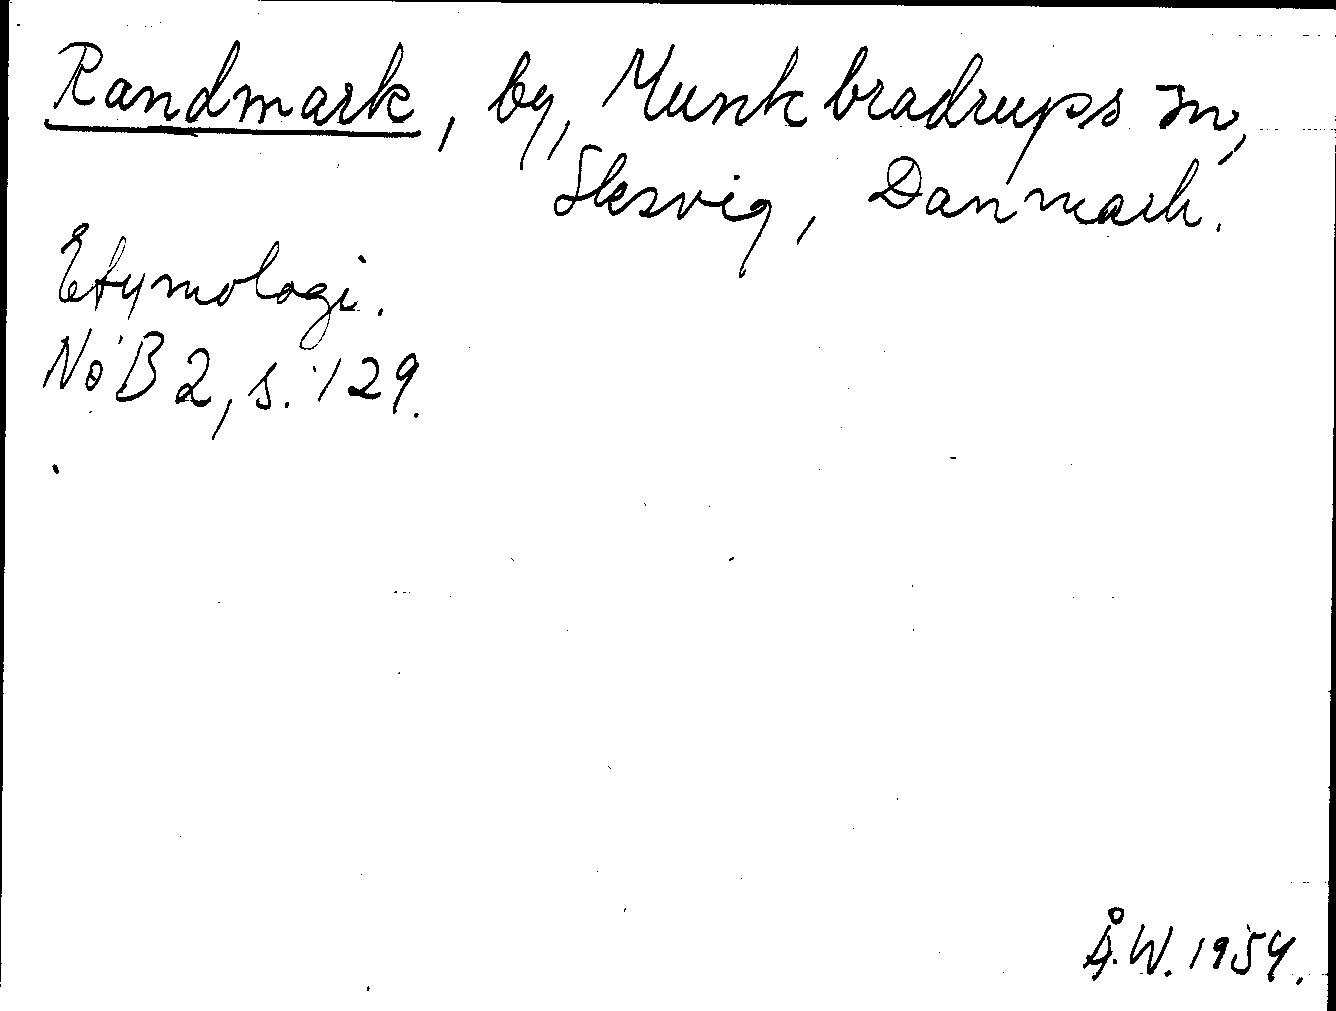 Randmark, by, Munkbradrups sn,
Slesvig, Danmark.
Etymologi.
NoB 2, s. 129.
Å.W. 1954.